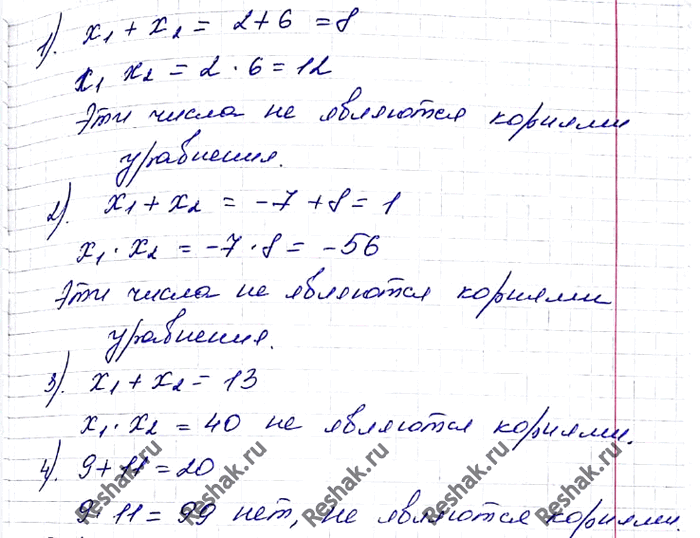 1). x₁ + x₂ = 2+6 = 8
x₁ x₂ = 2 · 6 = 12
Эти числа не являются корнями
уравнения.
2). x₁ + x₂ = -7 + 8 = 1
x₁ · x₂ = -7 · 8 = -56
Эти числа не являются корнями
уравнения.
3). x₁ + x₂ = 13
x₁ · x₂ = 40 не являются корнями.
4). 9 + 11 = 20
9 · 11 = 99 нет, не являются корнями.
Reshak.ru Reshak.ru Reshak.ru Reshak.ru Reshak.ru